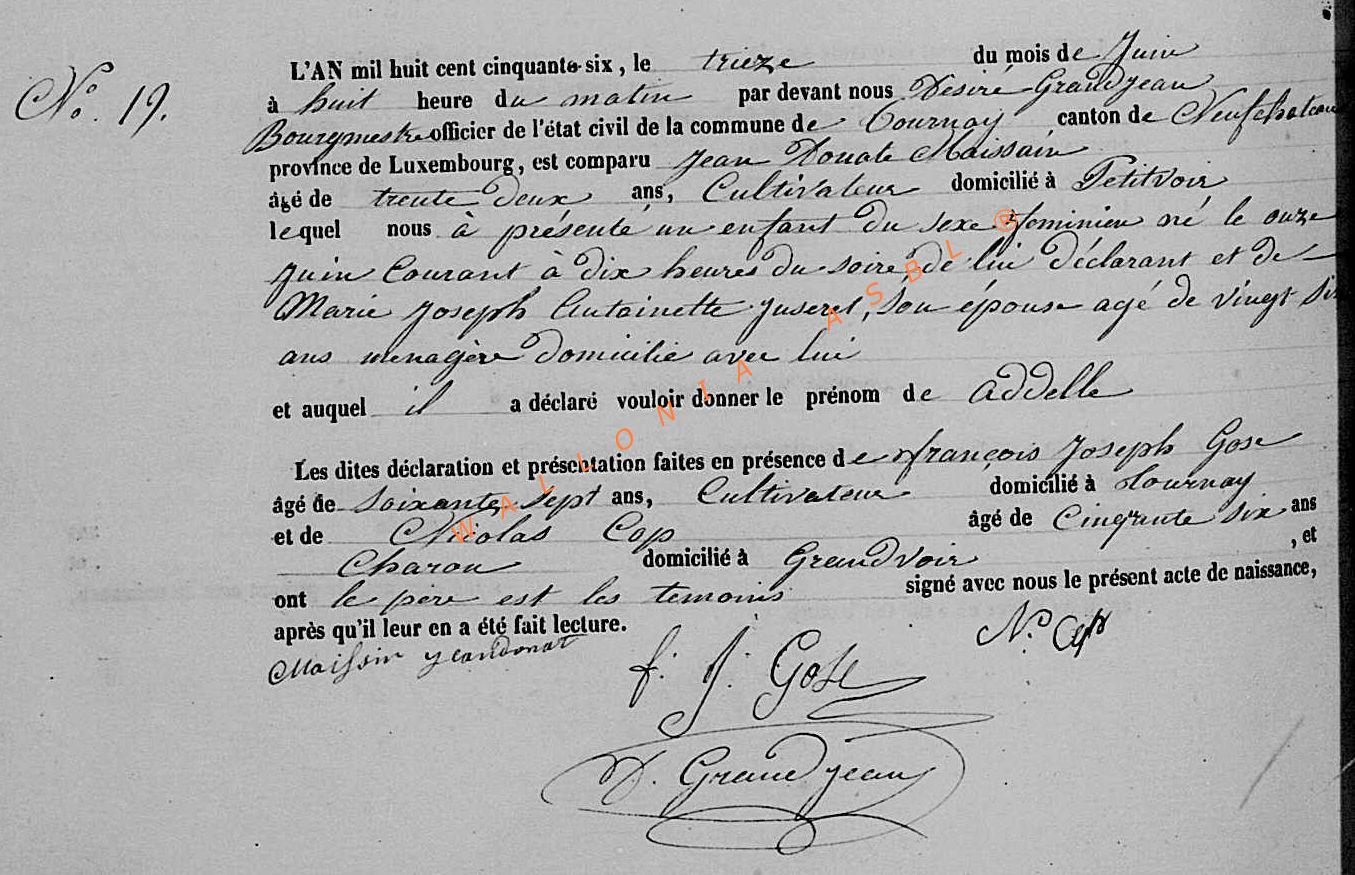 No. 19.
L'AN mil huit cent cinquante-six, le trieze du mois de Juin
à huit heure du matin par devant nous Désiré Grandjean
Bourgmestre officier de l'état civil de la commune de Tournay canton de Neufchateau
province de Luxembourg, est comparu Jean Donate Maissain
âgé de trente deux ans, Cultivateur domicilié à Petitvoir
lequel nous à présenté un enfant du sexe feminien né le onze
Juin Courant à dix heures du soire, de lui déclarant et de
Marie Joseph Antoinette Juseret, son épouse agé de vingt six
ans menagère domicilié avec lui
et auquel il a déclaré vouloir donner le prénom de addelle
Les dites déclaration et présentation faites en présence de françois Joseph Gose
âgé de soixante sept ans, Cultivateur domicilié à Tournay
et de Nicolas Cop âgé de Cinqante six ans
Charon domicilié à Grandvoir , et
ont le père est les temoins signé avec nous le présent acte de naissance,
après qu'il leur en a été fait lecture.
Maissin jeandonat
f. J. Gose
N. Cop
D. Grandjean
WALLONIA ASBL ®